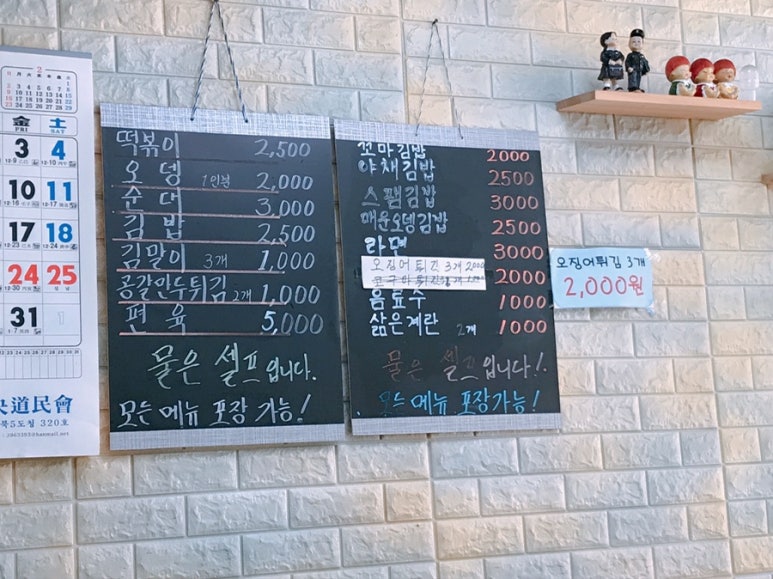 2
金 土
FRI SAT
3 4
10 11
17 18
24 25
31 1
道民會
북5도청 320호
떡볶이 2,500
오뎅 1인분 2,000
순대 3,000
김밥 2,500
김말이 3개 1,000
공갈만두튀김 2개 1,000
편육 5,000
물은 셀프입니다.
모든 메뉴 포장 가능!
꼬마김밥 2000
야채김밥 2500
스팸김밥 3000
매운오뎅김밥 2500
라면 3000
오징어튀김 3개 2,000
2000
음료수 1000
삶은계란 2개 1000
물은 셀프입니다!
모든 메뉴 포장가능!
오징어튀김 3개
2,000원